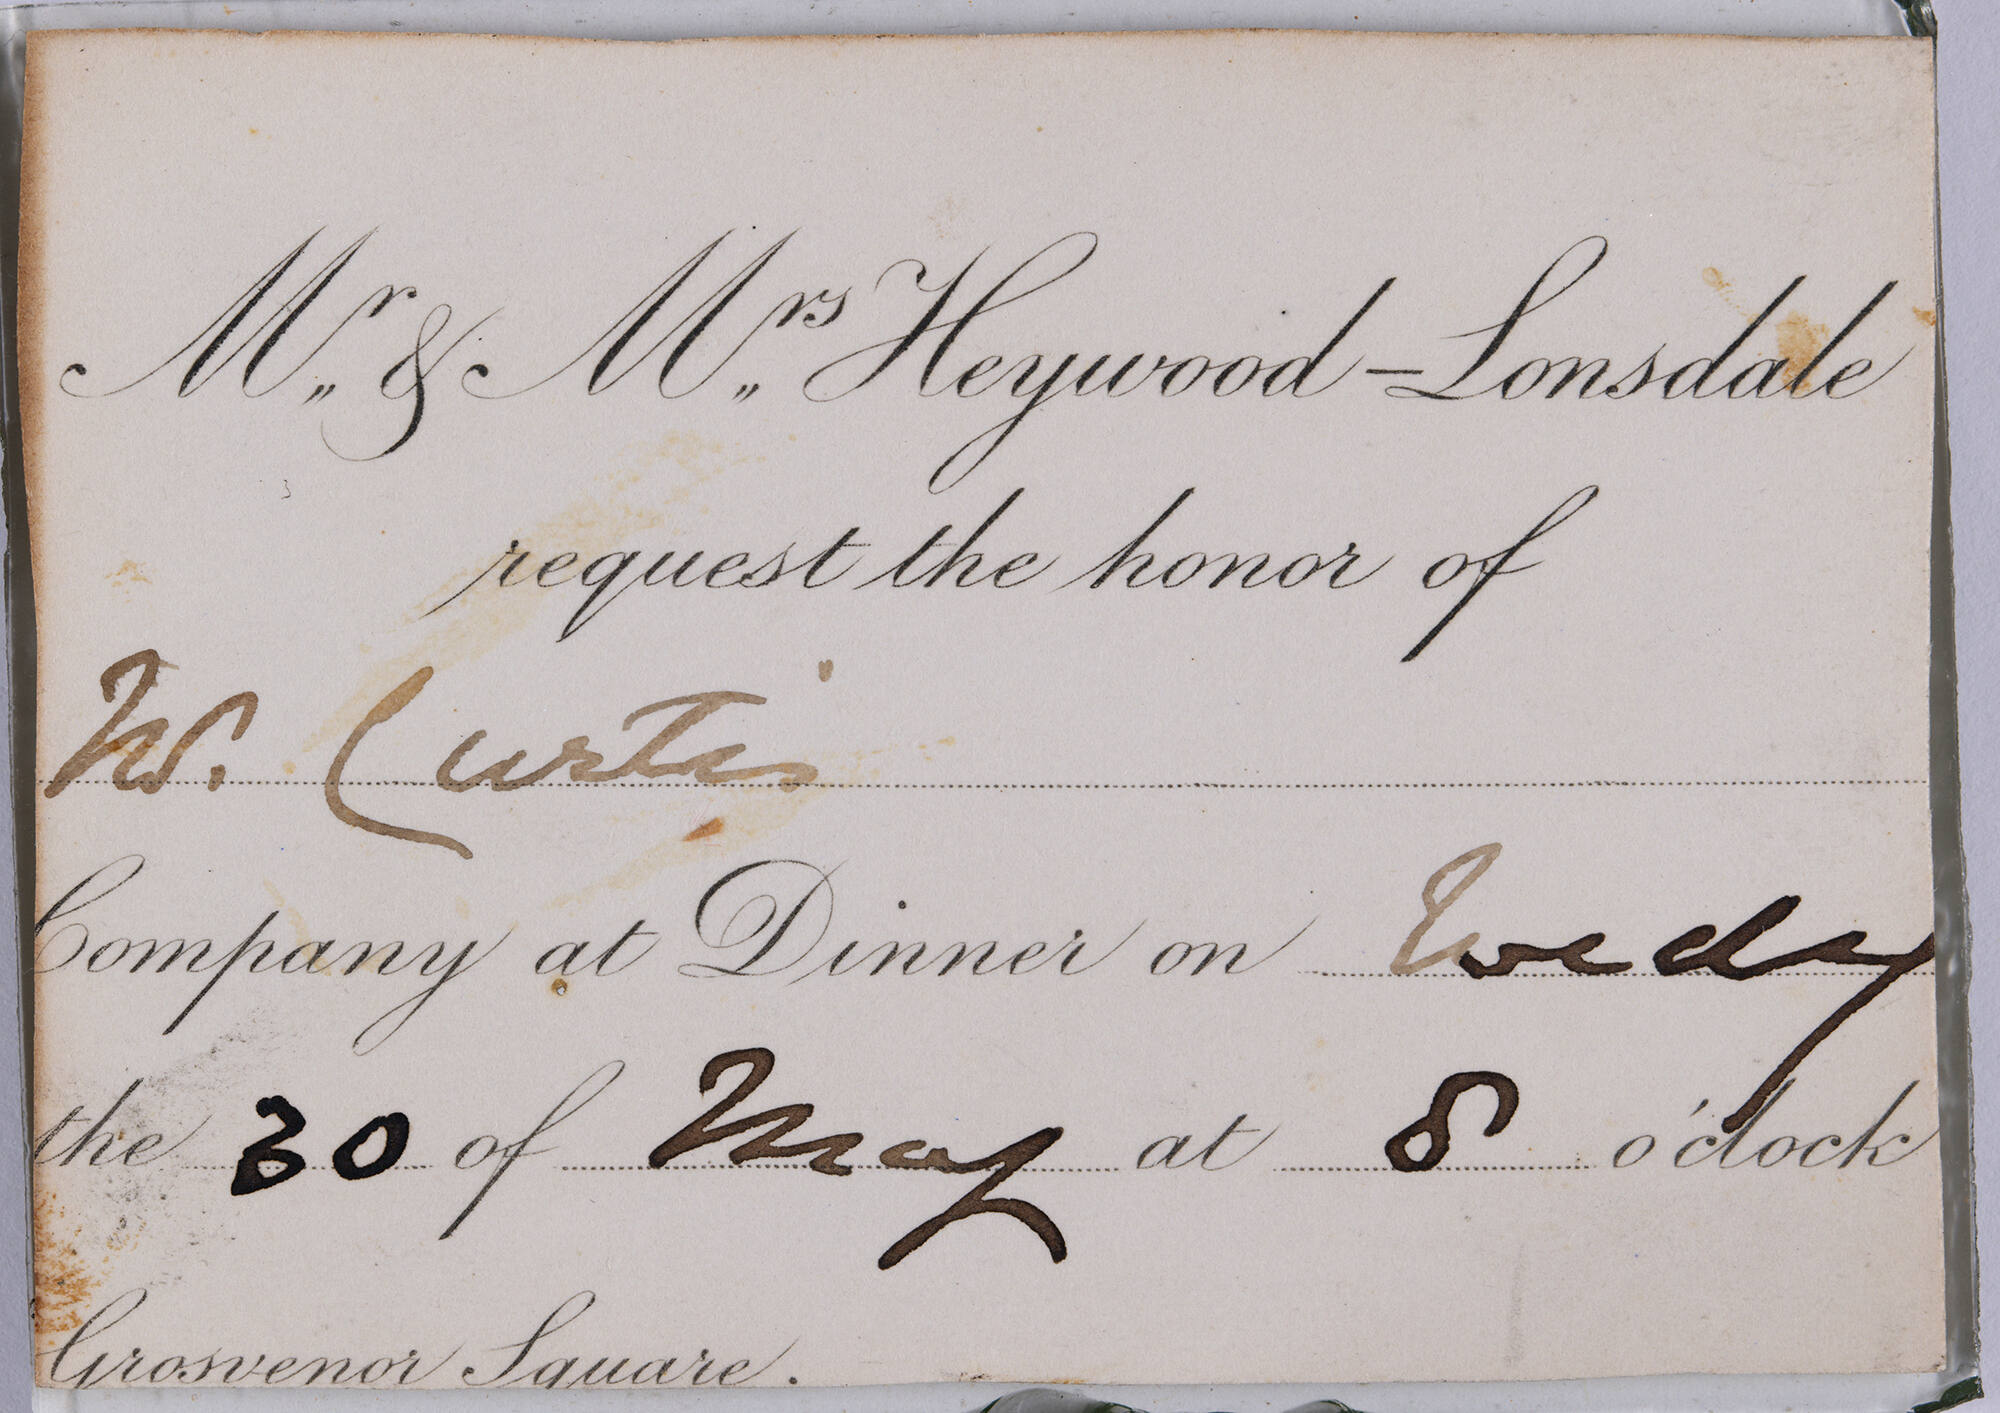 Mr. & Mrs. Heywood-Lonsdale
request the honor of
W. Curtis
Company at Dinner on Wedy
the 30 of May at 8 o'clock
Grosvenor Square.